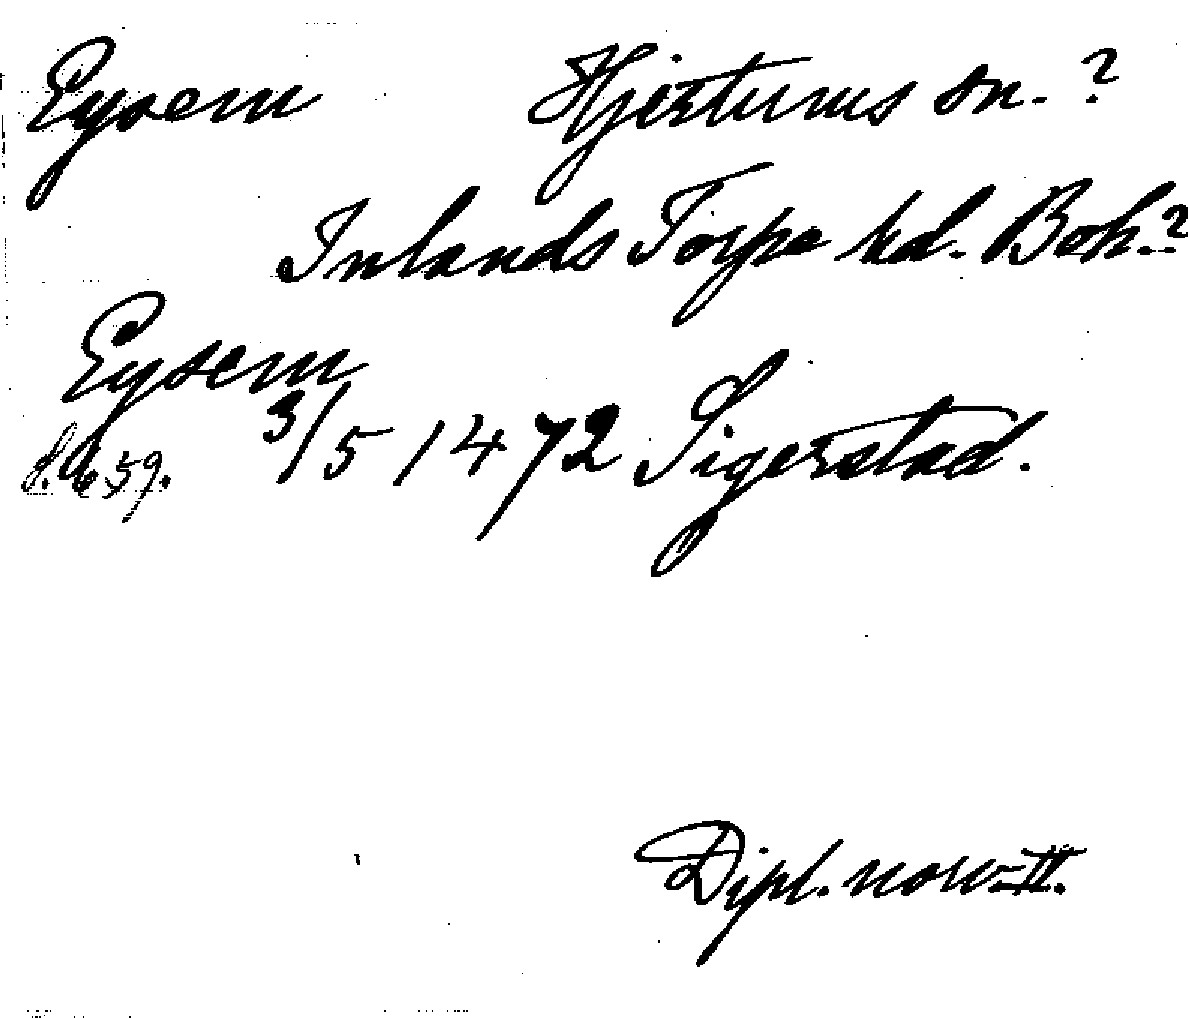 Eysem Hjertums sn. ?
Inlands Torpe hd. Boh. ?
Eysem
s. 659. 3/5 1472 Sigerstad.
Dipl. norv. II.